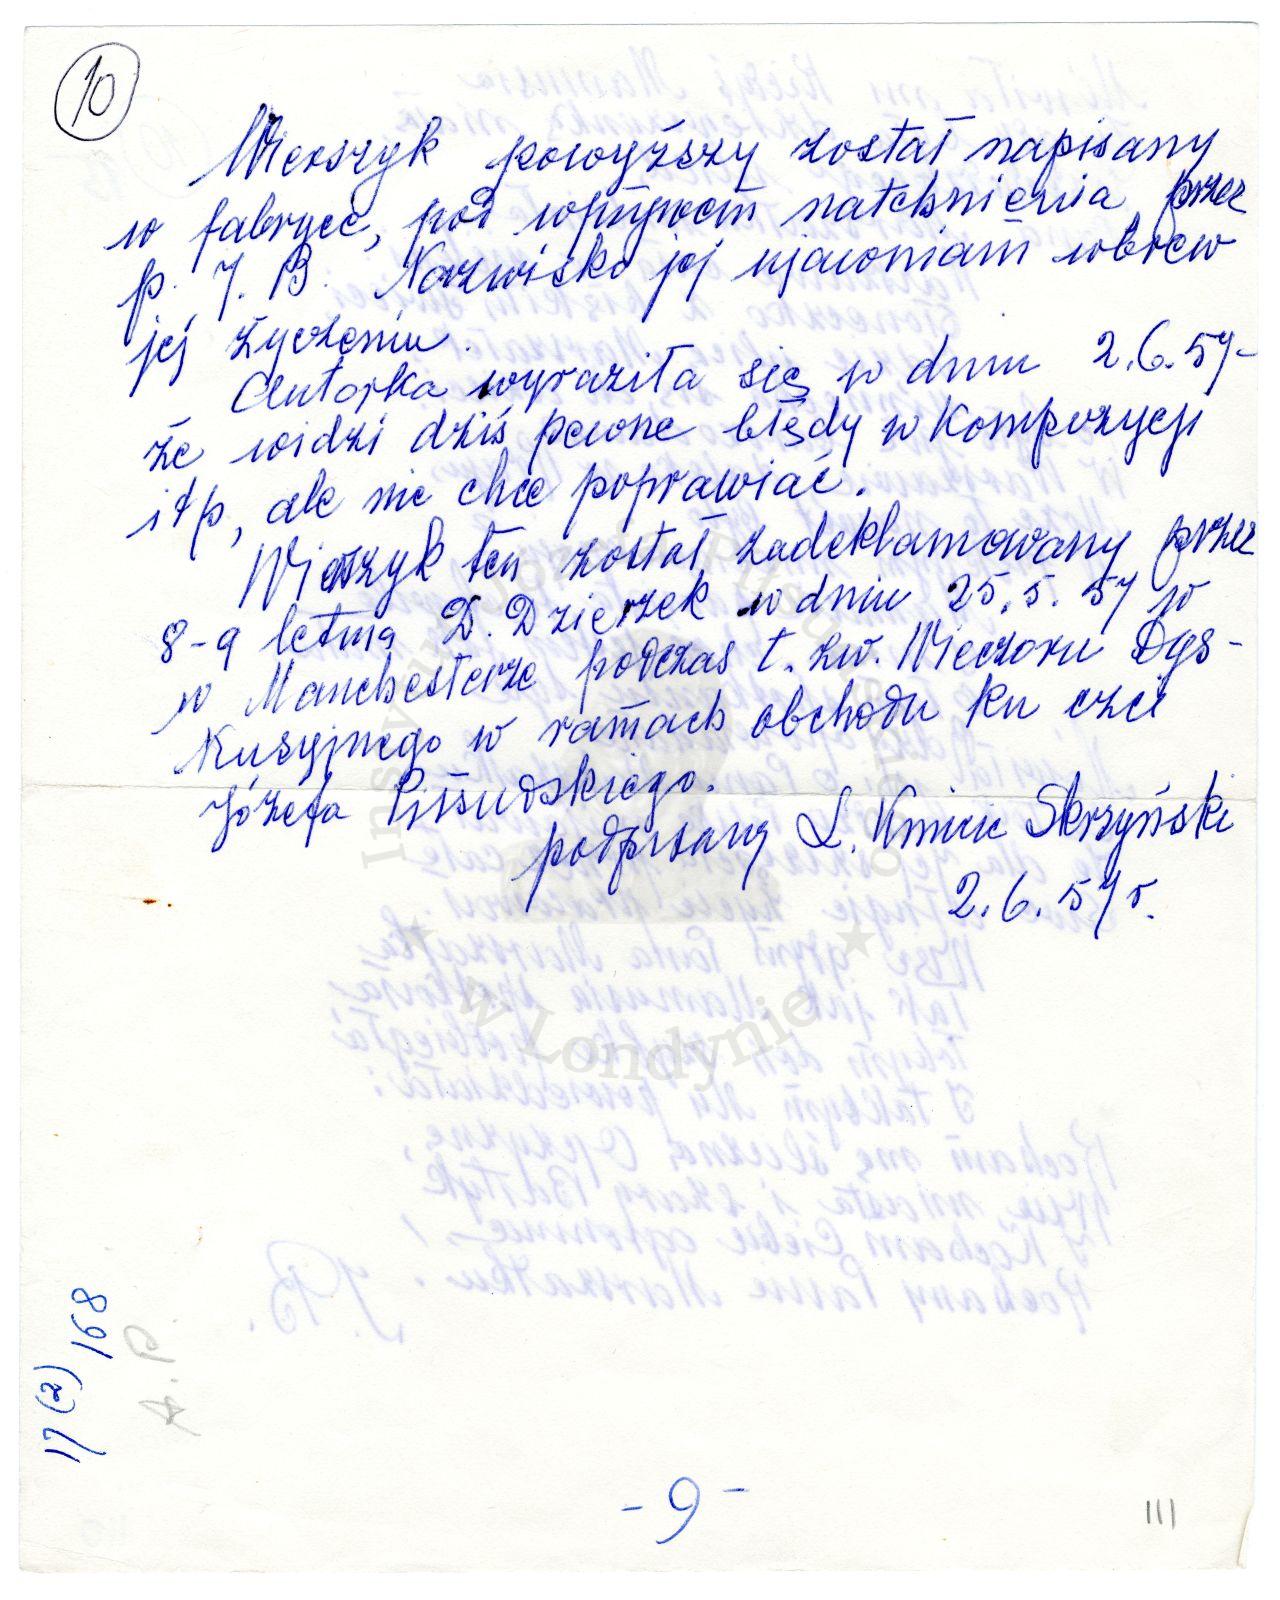 10
Wierszyk powyższy został napisany
w fabryce, pod wpływem natchnienia przez
p. J. B. Nazwisko jej ujawniam wbrew
jej życzeniu.
Autorka wyraziła się w dniu 2.6.57-
że widzi dziś pewne błędy w kompozycji
itp, ale nie chce poprawiać.
Wierszyk ten został zadeklamowany przez
8-9 letnią D. Dzierzek w dniu 25.5.57 w
w Manchesterze podczas t. zw. Wieczoru Dys-
kusyjnego w ramach obchodu ku czci
Józefa Piłsudskiego.
podpisany L. Kmicic Skrzyński
2.6.57r.
w Londynie
17(2) 168
A.P.
- 9 -
111